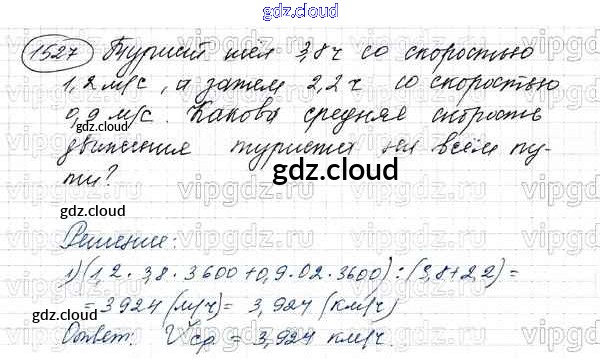 gdz.cloud
1527 Турист шёл 3,8 ч со скоростью
1,2 м/с, а затем 2,2 ч со скоростью
0,9 м/с. Какова средняя скорость
движения туриста на всём пу-
ти?
gdz.cloud
gdz.cloud
Решение:
1) (1,2 · 3,8 · 3600 + 0,9 · 02 · 3600) : (3,8 + 2,2) =
= 3924 (м/ч) = 3,924 (км/ч)
Ответ: Vср = 3,924 км/ч.
gdz.cloud
gdz.cloud
vipgdz.ru
vipgdz.ru
vipgdz.ru